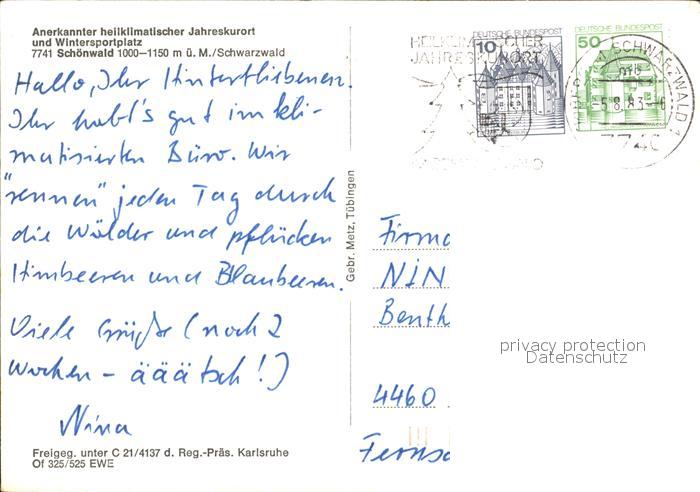 Anerkannter heilklimatischer Jahreskurort
und Wintersportplatz
7741 Schönwald 1000—1150 m ü. M./Schwarzwald
Hallo, Ihr Hinterbliebenen.
Ihr habt's gut im kli-
matisierten Büro. Wir
"rennen" jeden Tag durch
die Wälder und pflücken
Himbeeren und Blaubeeren.
Viele Grüße (noch 2
Wochen - äääätsch!)
Nina
Freigeg. unter C 21/4137 d. Reg.-Präs. Karlsruhe
Of 325/525 EWE
Gebr. Metz, Tübingen
HEILKLIMATISCHER
JAHRESKURORT
DEUTSCHE BUNDESPOST
10
DEUTSCHE BUNDESPOST
50
SCHWARZWALD 1
5.8.83
Firma
NIN
Benth
4460
Ferns
privacy protection
Datenschutz